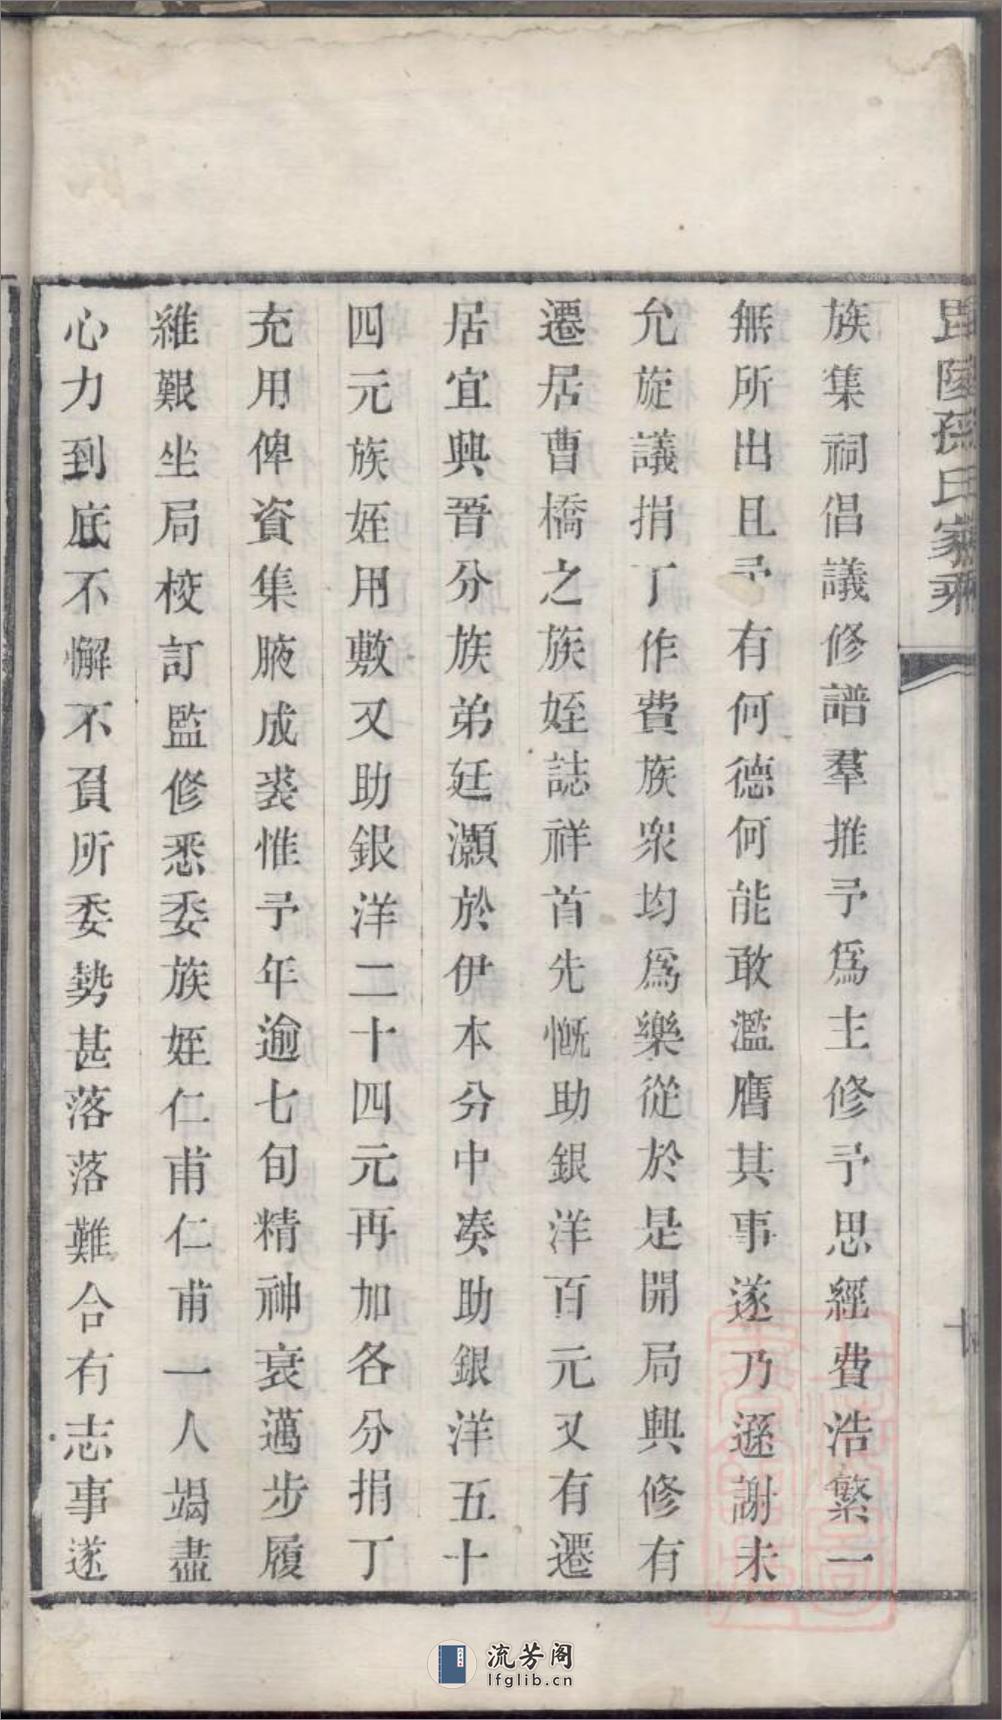 毘陵孫氏家乘
族集祠倡議修譜羣推予爲主修予思經費浩繁一
無所出且予有何德何能敢濫膺其事遂乃遜謝未
允旋議捐丁作費族衆均爲樂從於是開局興修有
遷居曹橋之族姪誌祥首先慨助銀洋百元又有遷
居宜興晉分族弟廷灝於伊本分中凑助銀洋五十
四元族姪用敷又助銀洋二十四元再加各分捐丁
充用俾資集腋成裘惟予年逾七旬精神衰邁步履
維艱坐局校訂監修悉委族姪仁甫仁甫一人竭盡
心力到底不懈不負所委勢甚落落難合有志事遂
流芳阁
lfglib.cn